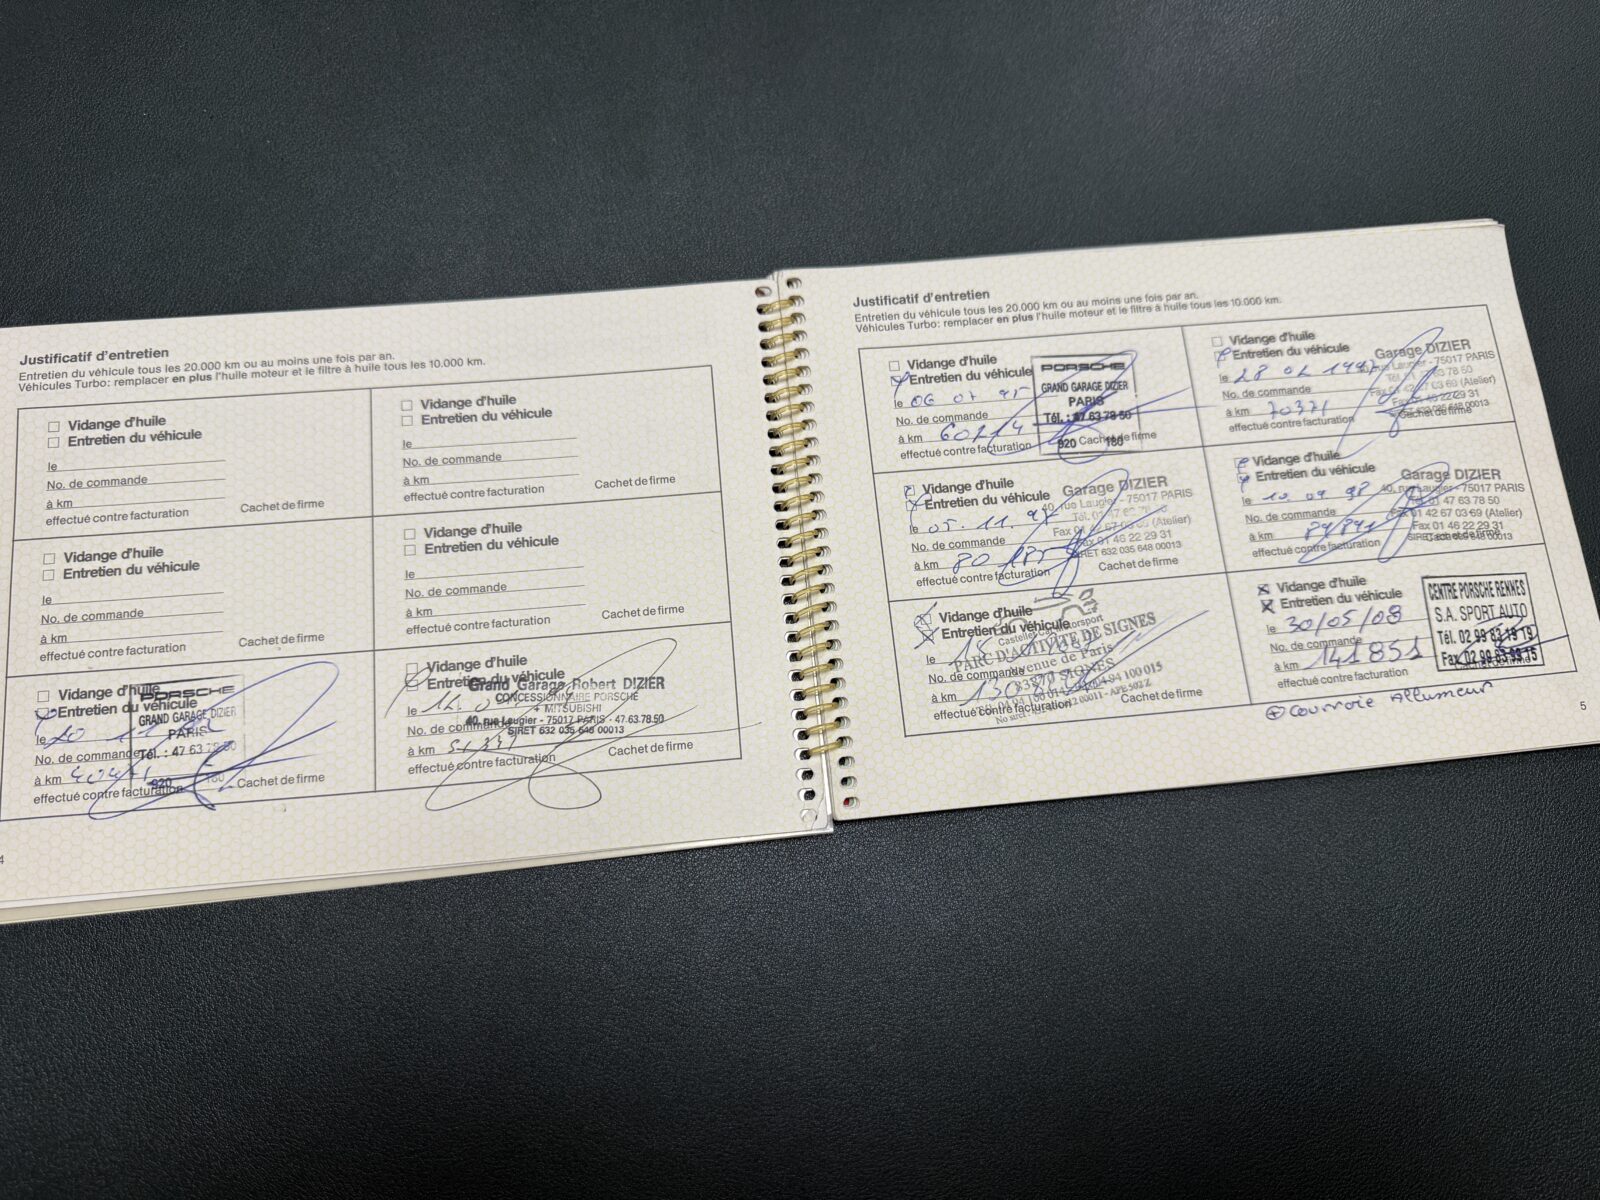 Justificatif d'entretien
Entretien du véhicule tous les 20.000 km ou au moins une fois par an.
Véhicules Turbo: remplacer en plus l'huile moteur et le filtre à huile tous les 10.000 km.
Vidange d'huile
Entretien du véhicule
le
No. de commande
à km
effectué contre facturation
Cachet de firme
Vidange d'huile
Entretien du véhicule
le
No. de commande
à km
effectué contre facturation
Cachet de firme
Vidange d'huile
Entretien du véhicule
le
No. de commande
à km
effectué contre facturation
Cachet de firme
Vidange d'huile
Entretien du véhicule
le
No. de commande
à km
effectué contre facturation
Cachet de firme
Vidange d'huile
Entretien du véhicule
le
No. de commande
à km
effectué contre facturation
Cachet de firme
PORSCHE
GRAND GARAGE DIZIER
PARIS
Tél. : 47 63 78 50
920 180
Vidange d'huile
Entretien du véhicule
le
No. de commande
à km
effectué contre facturation
Cachet de firme
Grand Garage Robert DIZIER
CONCESSIONNAIRE PORSCHE
+ MITSUBISHI
40, rue Laugier - 75017 PARIS - 47.63.78.50
SIRET 632 035 648 00013
4
Justificatif d'entretien
Entretien du véhicule tous les 20.000 km ou au moins une fois par an.
Véhicules Turbo: remplacer en plus l'huile moteur et le filtre à huile tous les 10.000 km.
Vidange d'huile
Entretien du véhicule
le 06 07 95
No. de commande
à km 60214
effectué contre facturation
Cachet de firme
PORSCHE
GRAND GARAGE DIZIER
PARIS
Tél. : 47 63 78 50
920 180
Vidange d'huile
Entretien du véhicule
le 28 02 1997
No. de commande
à km 70371
effectué contre facturation
Cachet de firme
Garage DIZIER
75017 PARIS
Fax 01 42 67 03 69 (Atelier)
Fax 01 46 22 29 31
Vidange d'huile
Entretien du véhicule
le 05. 11. 97
No. de commande
à km
effectué contre facturation
Cachet de firme
Garage DIZIER
40, rue Laugier - 75017 PARIS
Fax 01 42 67 03 69 (Atelier)
Fax 01 46 22 29 31
SIRET 632 035 648 00013
Vidange d'huile
Entretien du véhicule
le 10. 09 98
No. de commande
à km
effectué contre facturation
Cachet de firme
Garage DIZIER
40, rue Laugier - 75017 PARIS
Tél 01 47 63 78 50
Fax 01 42 67 03 69 (Atelier)
Fax 01 46 22 29 31
Vidange d'huile
Entretien du véhicule
le
No. de commande
à km
effectué contre facturation
Cachet de firme
PARC D'ACTIVITE DE SIGNES
Avenue de Paris
83870 SIGNES
Vidange d'huile
Entretien du véhicule
le 30/05/08
No. de commande
à km 141851
effectué contre facturation
CENTRE PORSCHE RENNES
S.A. SPORT AUTO
Tél. 02 99 83 19 19
Fax 02 99 83 99 15
⊕ Courroie Allumeur
5